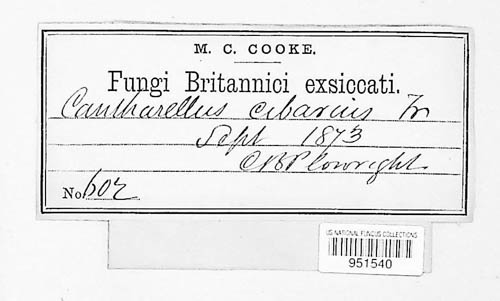 M. C. COOKE.
Fungi Britannici exsiccati.
Cantharellus cibarius Fr
Sept 1873
CBPlowright
No. 602
US NATIONAL FUNGUS COLLECTIONS
951540